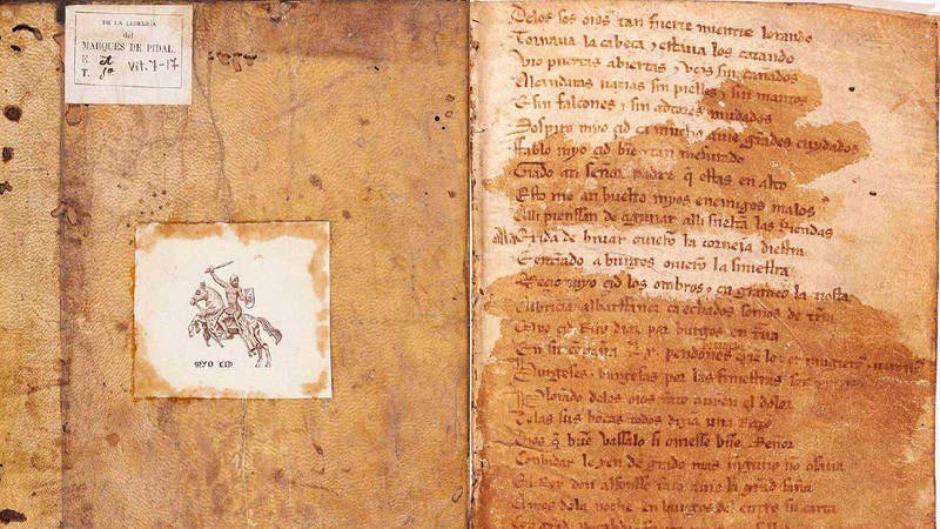 DE LA LIBRERIA
del
MARQUES DE PIDAL.
E.
T. Vit. 7-17
MYO CID
Delos sos oios tan fuerte mientre lorando
Tornaua la cabeça ⁊ estaua los catando
Vio puertas abiertas ⁊ vços sin cañados
Alcandaras uazias sin pielles ⁊ sin mantos
E sin falcones ⁊ sin adtores mudados
Sospiro myo çid ca mucho auie grandes cuydados
Fablo myo çid bien ⁊ tan mesurado
Grado ati señor padre q̃ estas en alto
Esto me an buelto myos enemigos malos
Alli pienssan de aguiiar alli sueltan las Riendas
Ala Exida de biuar ouieron la corneia diestra
E entrando a burgos ouieron la siniestra
Meçio myo çid los ombros ⁊ en grameo la tiesta
Albricia albarffanez ca echados somos de trra
Myo çid Ruy diaz por burgos en traua
En su conpaña .Lx. pendones
burgeses ⁊ burgesas por las finiestras
Plorando delos oios tanto auien el dolor
Delas sus bocas todos dizian una Razon
Dios q̃ buen vassalo si ouiesse buen Señor
Conbidar le yen de grado mas ninguno non osaua
El Rey don alfonsso tanto auie la grand saña
Antes dela noche en burgos del entro su carta